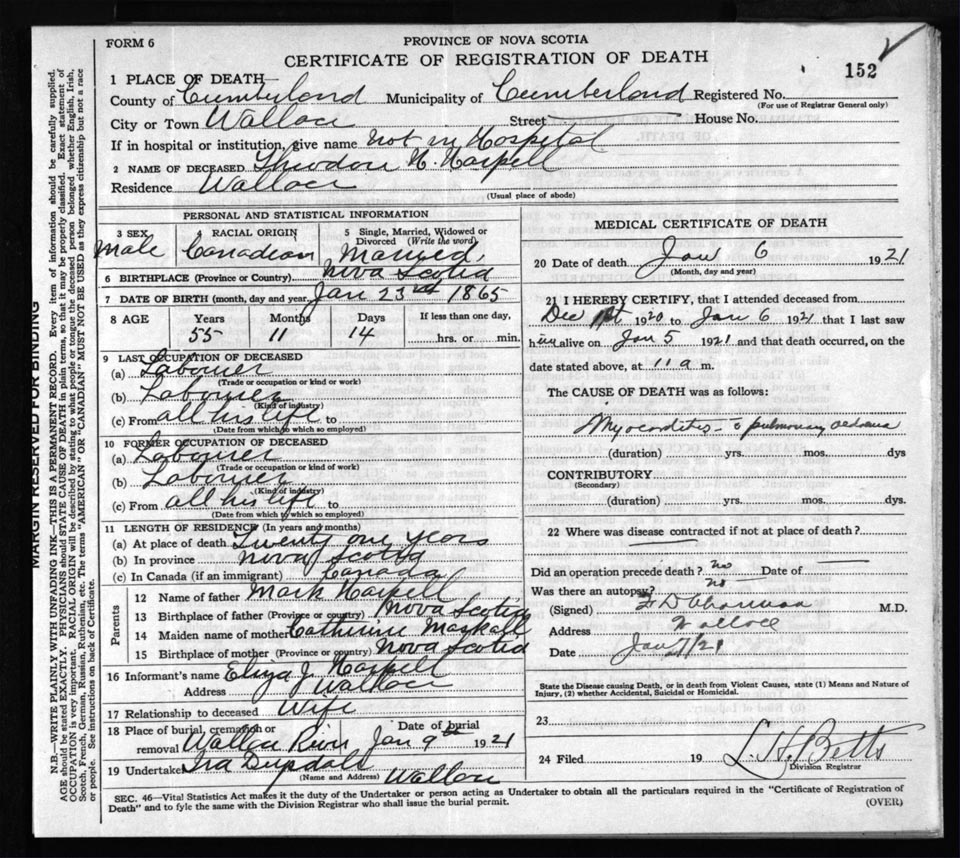 FORM 6
PROVINCE OF NOVA SCOTIA
CERTIFICATE OF REGISTRATION OF DEATH
152
1 PLACE OF DEATH—
County of Cumberland Municipality of Cumberland Registered No.
(For use of Registrar General only)
City or Town Wallace Street House No.
If in hospital or institution, give name not in Hospital
2 NAME OF DECEASED Theodore H. Haskell
Residence Wallace
(Usual place of abode)
PERSONAL AND STATISTICAL INFORMATION
3 SEX
Male
4 RACIAL ORIGIN
Canadian
5 Single, Married, Widowed or Divorced (Write the word)
Married
6 BIRTHPLACE (Province or Country) Nova Scotia
7 DATE OF BIRTH (month, day and year) Jan 23rd 1865
8 AGE Years Months Days If less than one day,
55 11 14 hrs. or min.
9 LAST OCCUPATION OF DECEASED
(a) Labourer
(Trade or occupation or kind or work)
(b) Labourer
(Kind of industry)
(c) From all his life to
(Date from which to which so employed)
10 FORMER OCCUPATION OF DECEASED
(a) Labourer
(Trade or occupation or kind of work)
(b) Labourer
(Kind of industry)
(c) From all his life to
(Date from which to which so employed)
11 LENGTH OF RESIDENCE (In years and months)
(a) At place of death Twenty one years
(b) In province Nova Scotia
(c) In Canada (if an immigrant) Canada
Parents
12 Name of father Mark Haskell
13 Birthplace of father (Province or country) Nova Scotia
14 Maiden name of mother Catherine
15 Birthplace of mother (Province or country) Nova Scotia
16 Informant's name Eliza J. Haskell
Address Wallace
17 Relationship to deceased Wife
18 Place of burial, cremation or removal Wallace River
Date of burial Jan 9th 1921
19 Undertaker Ira Wallace
(Name and Address)
MEDICAL CERTIFICATE OF DEATH
20 Date of death Jan 6 1921
(Month, day and year)
21 I HEREBY CERTIFY, that I attended deceased from
Dec 1st 1920 to Jan 6 1921 that I last saw
him alive on Jan 5 1921 and that death occurred, on the
date stated above, at 11 a m.
The CAUSE OF DEATH was as follows:
Myocarditis - c pulmonary oedema
(duration) yrs. mos. dys
CONTRIBUTORY
(Secondary)
(duration) yrs. mos. dys.
22 Where was disease contracted if not at place of death?
Did an operation precede death? no Date of
Was there an autopsy? no
(Signed) F D Charman M.D.
Address Wallace
Date Jan 7/21
State the Disease causing Death, or in death from Violent Causes, state (1) Means and Nature of
Injury, (2) whether Accidental, Suicidal or Homicidal.
23
24 Filed 19 L. H. Betts
Division Registrar
SEC. 46—Vital Statistics Act makes it the duty of the Undertaker or person acting as Undertaker to obtain all the particulars required in the "Certificate of Registration of
Death" and to fyle the same with the Division Registrar who shall issue the burial permit.
(OVER)
MARGIN RESERVED FOR BINDING
N.B.—WRITE PLAINLY WITH UNFADING INK—THIS IS A PERMANENT RECORD. Every item of information should be carefully supplied.
AGE should be stated EXACTLY. PHYSICIANS should STATE CAUSE OF DEATH in plain terms, so that it may be properly classified. Exact statement of
OCCUPATION is very important. RACIAL ORIGIN will be described by stating to what people or tongue the deceased person belonged, whether English, Irish,
Scotch, French, German, Russian, Ruthenian, etc. The terms "AMERICAN" OR "CANADIAN" MUST NOT BE USED as they express citizenship but not a race
or people. See instructions on back of Certificate.